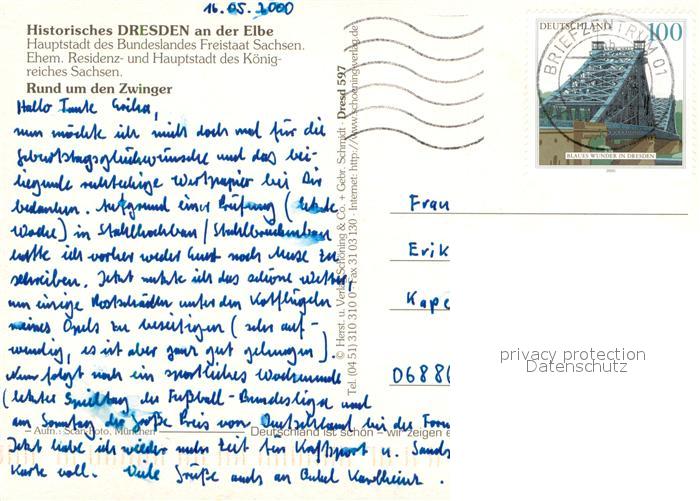 16.05.2000
Historisches DRESDEN an der Elbe
Hauptstadt des Bundeslandes Freistaat Sachsen.
Ehem. Residenz- und Hauptstadt des König-
reiches Sachsen.
Rund um den Zwinger
Hallo Tante Erika,
nun möchte ich mich doch mal für die
Geburtstagsglückwünsche und das bei-
liegende rechteckige Wertpapier bei Dir
bedanken. Aufgrund einer Prüfung (letzte
Woche) in Stahlhochbau / Stahlbrückenbau
hatte ich vorher weder Lust noch Muse zu
schreiben. Jetzt nutzte ich das schöne Wetter
um einige Rostschäden unter den Kotflügeln
meines Opels zu beseitigen (sehr auf-
wendig, es ist aber ganz gut gelungen).
Nun folgt noch ein sportliches Wochenende
(letzter Spieltag der Fußball-Bundesliga und
am Sonntag der Große Preis von Deutschland bei der Form
Jetzt habe ich wieder mehr Zeit für Kraftsport u.
Karte voll. Viele Grüße auch an Onkel Karlheinz.
– Aufn.: Scan-Foto, München
Deutschland ist schön – wir zeigen e
© Herst. u. Verlag Schöning & Co. + Gebr. Schmidt · Dresd 597
Tel. (04 51) 310 310 · Fax 31 03 130 · Internet: http://www.schoeningverlag.de
BRIEFZENTRUM 01
DEUTSCHLAND 100
BLAUES WUNDER IN DRESDEN
2000
Frau
Erik
Kape
0688
privacy protection
Datenschutz